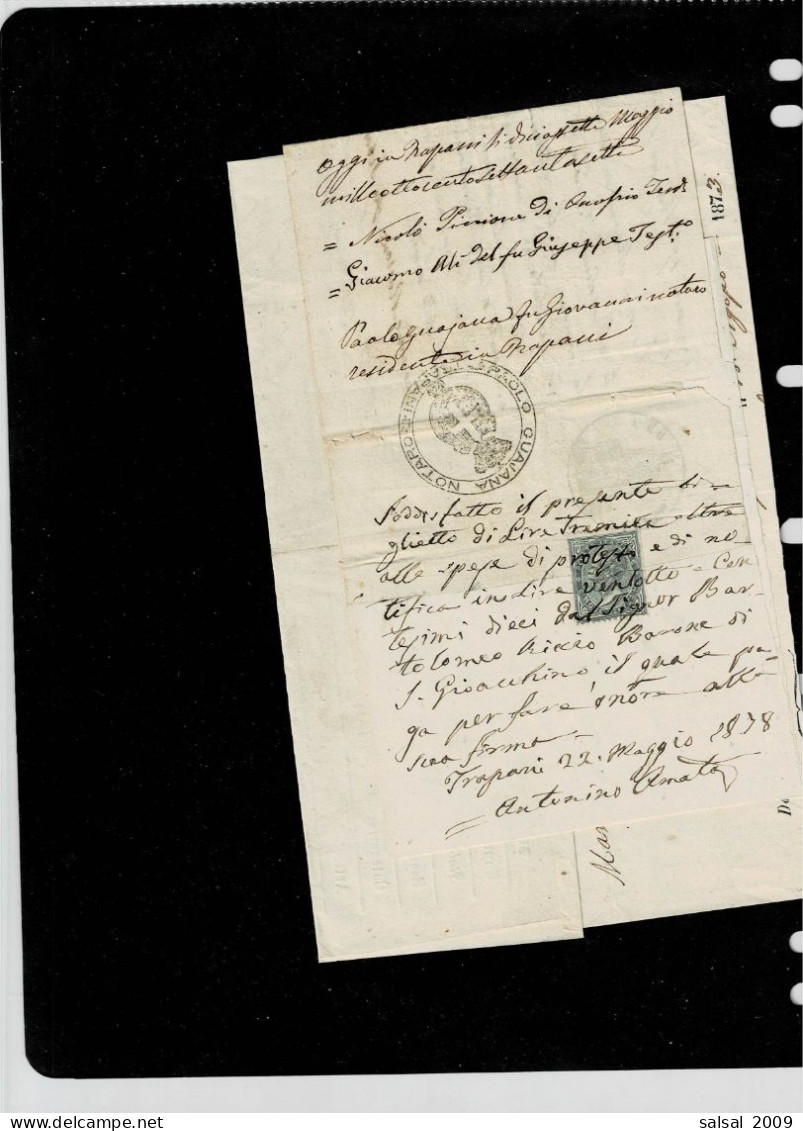 oggi in Trapani li diciassette Maggio
milleottocentosettantasette
= Nicolò Pissione di Onofrio Test:
= Giacomo Alì del fu Giuseppe Test:o
Paolo Guajana fu Giovanni notaro
residente in Trapani
PAOLO GUAJANA NOTARO IN TRAPANI
Soddisfatto il presente bi-
glietto di Lire Tremila oltre
alle spese di protesto e di no
tifica in Lire ventotto e Cen
tesimi dieci dal Signor Bar-
tolomeo Riccio Barone di
S. Gioacchino, il quale pa-
ga per fare onore alla
sua firma =
Trapani 22. Maggio 1878
= Antonino Amato
1873.
Mar
De
salsal 2009